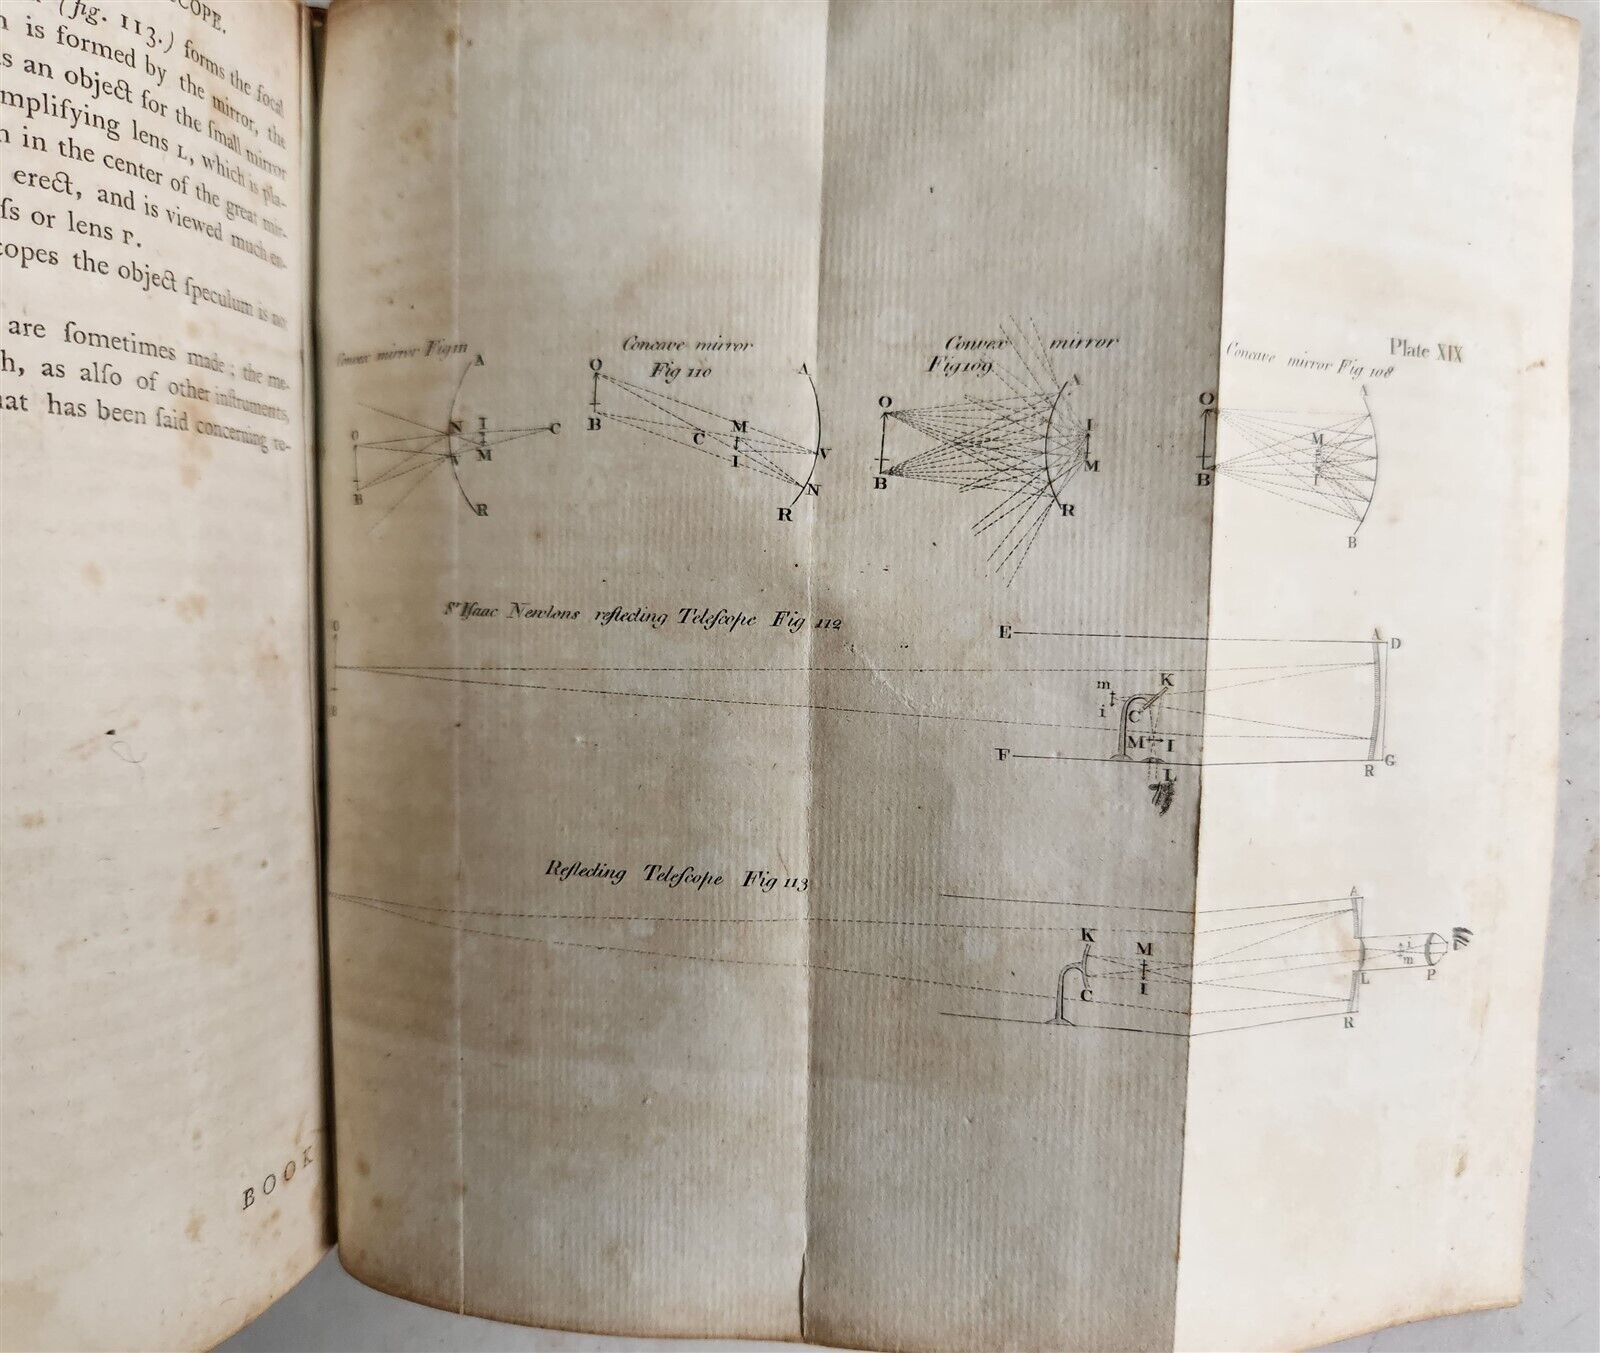 SCOPE.
(fig. 113.) forms the focal
is formed by the mirror, the
as an object for the ſmall mirror
mplifying lens L, which is pla-
n in the center of the great mir-
erect, and is viewed much en-
ſs or lens P.
copes the object ſpeculum is no
are ſometimes made; the me-
h, as alſo of other inſtruments,
hat has been ſaid concerning re-
BOOK
Plate XIX
Convex mirror Fig 111
A
O
N
I
C
V
M
B
R
Concave mirror
Fig 110
O
A
B
M
C
I
V
N
R
Convex mirror
Fig 109
A
O
I
B
M
R
Concave mirror Fig 108
O
A
M
I
B
B
Sr Iſaac Newtons reflecting Teleſcope Fig 112
O
B
E
A
D
K
m
i
C
M
I
F
L
R
G
Reflecting Teleſcope Fig 113
A
K
M
I
C
i
m
L
P
R